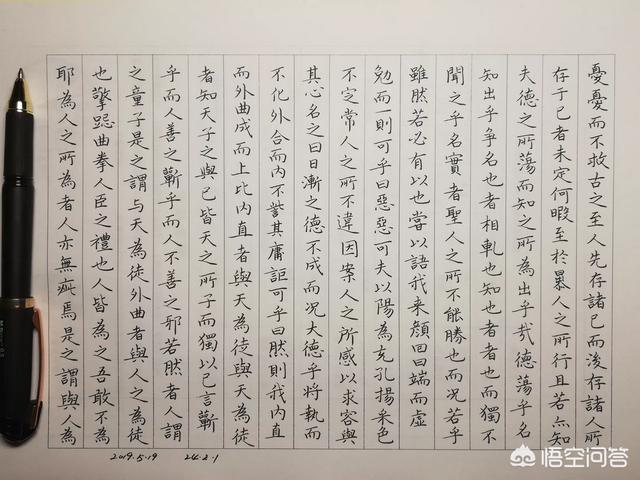 憂憂而不救古之至人先存諸己而後存諸人所
存于己者未定何暇至於暴人之所行且若亦知
夫德之所蕩而知之所為出乎哉德蕩乎名
知出乎爭名也者相軋也知也者者也而獨不
聞之乎名實者聖人之所不能勝也而況若乎
雖然若必有以也嘗以語我来顔回曰端而虛
勉而一則可乎曰惡惡可夫以陽為充孔揚采色
不定常人之所不違因案人之所感以求容與
其心名之曰日漸之德不成而况大德乎將執而
不化外合而内不訾其庸詎可乎曰然則我内直
而外曲成而上比内直者與天為徒與天為徒
者知天子之與己皆天之所子而獨以己言蘄
乎而人善之蘄乎而人不善之邪若然者人謂
之童子是之謂与天為徒外曲者與人之為徒
也擎跽曲拳人臣之禮也人皆為之吾敢不為
耶為人之所為者人亦無疵焉是之謂與人為
2019.5.19 24.2.1
悟空问答